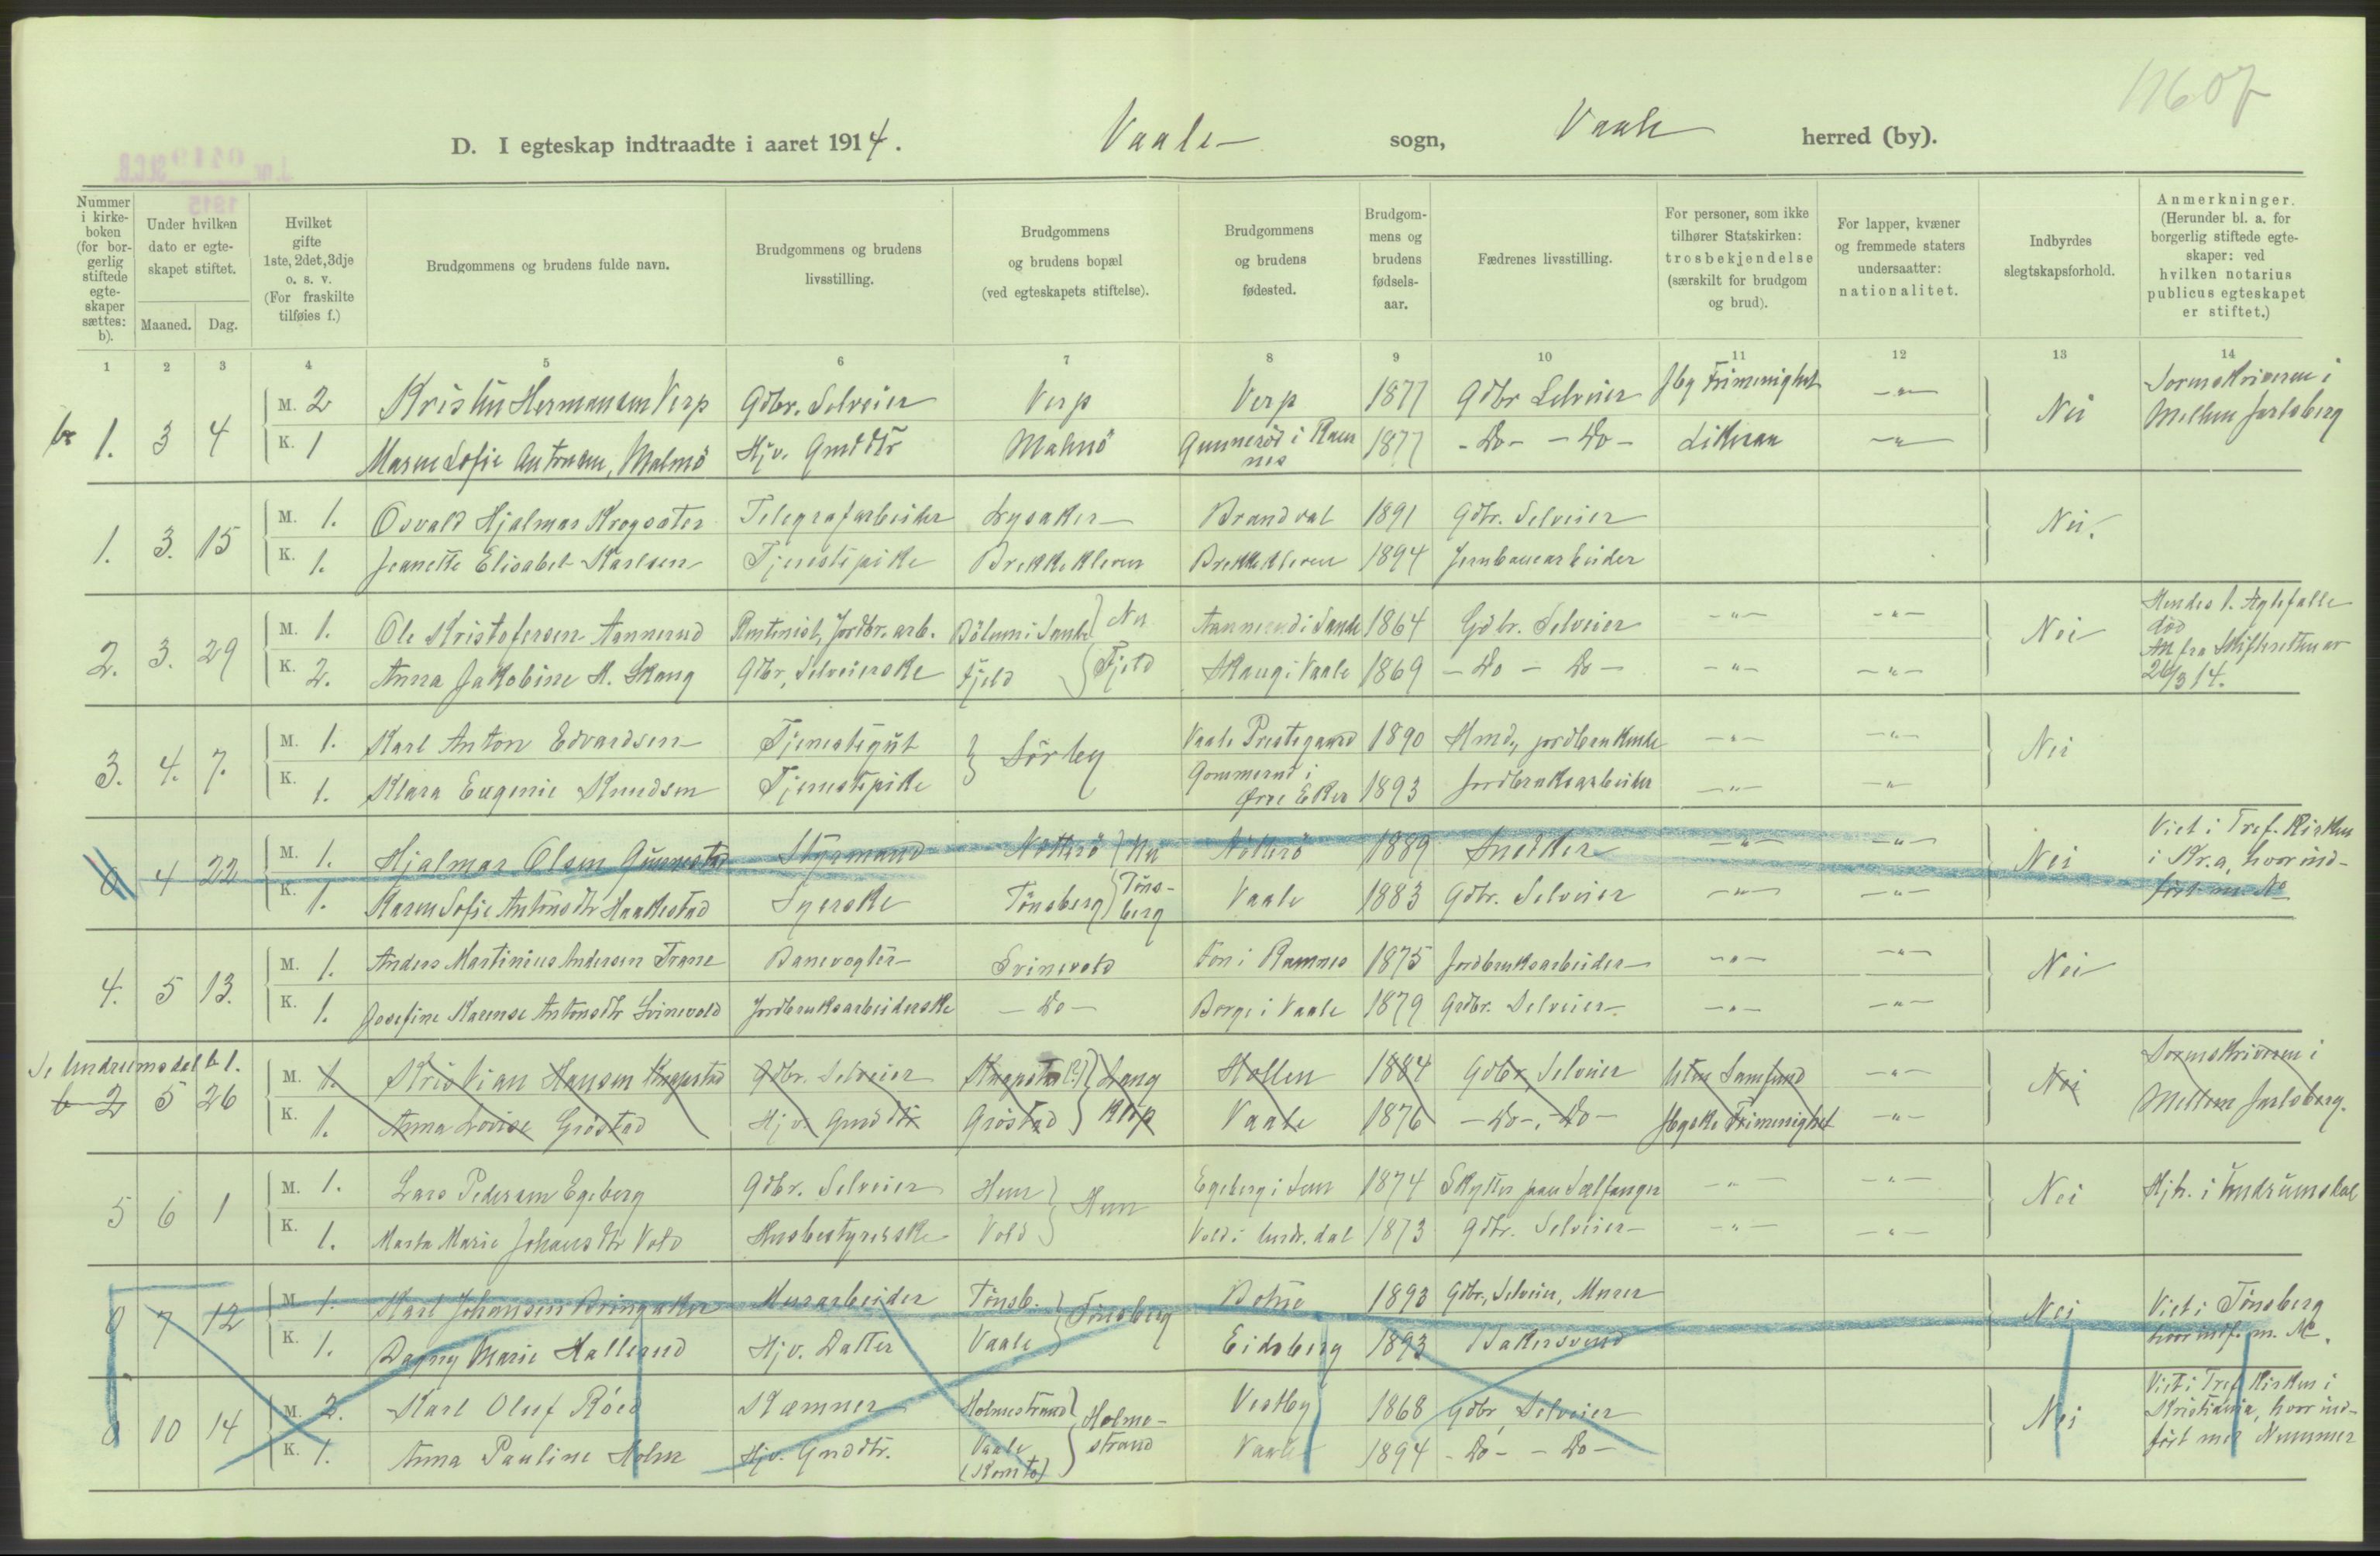 11607
D. I egteskap indtraadte i aaret 1914. Vaale sogn, Vaale herred (by).
Nummer i kirke-boken (for bor-gerlig stiftede egte-skaper sættes: b).
Under hvilken dato er egte-skapet stiftet.
Maaned. Dag.
Hvilket gifte 1ste, 2det, 3dje o. s. v. (For fraskilte tilføies f.)
Brudgommens og brudens fulde navn.
Brudgommens og brudens livsstilling.
Brudgommens og brudens bopæl (ved egteskapets stiftelse).
Brudgommens og brudens fødested.
Brudgom-mens og brudens fødsels-aar.
Fædrenes livsstilling.
For personer, som ikke tilhører Statskirken: trosbekjendelse (særskilt for brudgom og brud).
For lapper, kvæner og fremmede staters undersaatter: nationalitet.
Indbyrdes slegtskapsforhold.
Anmerkninger. (Herunder bl. a. for borgerlig stiftede egte-skaper: ved hvilken notarius publicus egteskapet er stiftet.)
1 2 3 4 5 6 7 8 9 10 11 12 13 14
b 1. 3 4 M. 2 Hermansen Verp Gdbr. Selveier Verp Verp 1877 Gdbr Selveier Frimenighet -"- Nei Sorenskriveren i Mellem Jarlsberg
K. 1 Maren Sofie Antonsen, Malmö Hjv. Gmddtr Malmö Gunnerød i Ramnes 1877 - Do - - Do - Likesaa -"-
1. 3. 15 M. 1. Osvald Hjalmar Krogsæter Telegrafarbeider Lysaker Brandval 1891 Gdbr. Selveier Nei.
K. 1. Jeanette Elisabet Karlsen Tjenestepike Brekkekleven Brekkekleven 1894 Jernbanearbeider
2. 3. 29 M. 1. Ole Kristofersen Aannerud Jordbr. arb. i Sande Nu Aannerud i Sande 1864 Gdbr. Selveier -"- -"- Nei Hendes 1. Egtefælle død
K. 2. Anna Jakobine H. Skaug Gdbr, Selveierske Fjeld Fjeld Skaug i Vaale 1869 - Do - Do - -"- -"- Att fra Skifteretten av 26/3 14.
3. 4. 7. M. 1. Karl Anton Edvardsen Tjenestegut Sörby Vaale Prestegaard 1890 Hmd, jordbrukende -"- -"- Nei
K. 1. Klara Eugenie Knudsen Tjenestepike Gommerud i Øvre Eker 1893 Jordbruksarbeider -"- -"-
0 4 22 M. 1. Hjalmar Olsen Gunnestad Styrmand Nøtterö Nu Nøtterö 1889 Snekker -"- -"- Nei Viet i Tref. Kirken i Kr.a, hvor ind-
K. 1. Karen Sofie Antonsdtr Haakestad Syerske Tönsberg Töns-berg Vaale 1883 Gdbr. Selveier -"- -"- ført m. No
4. 5 13. M. 1. Anders Martinius Andersen Trane Banevogter Svinevold Fon i Ramnes 1875 Jordbruksarbeider -"- -"- Nei
K. 1. Josefine Karense Antonsdtr Svinevold Jordbruksarbeiderske - Do - Borge i Vaale 1879 Gdbr. Selveier -"- -"-
Se Undrumsdal b 1.
b 2 5 26 M. 1. Kristian Hansen Knapstad Gdbr. Selveier Knapstad Lang Hollen 1884 Gdbr, Selveier Uten Samfund -"- Nei Sorenskriveren i
K. 1. Anna Lovise Gröstad Hjv. Gmddtr Gröstad Klop Vaale 1876 - Do -, - Do - Frimenighet -"- Mellem Jarlsberg.
5 6 1 M. 1. Lars Pedersen Egeberg Gdbr. Selveier Hem Hem Egeberg i Sem 1874 Skytter paa Sælfanger -"- -"- Nei Hjh. i Undrumsdal
K. 1. Marta Marie Johansdtr Vold Husbestyrerske Vold Vold i Undr.dal 1873 Gdbr. Selveier -"- -"-
0 7 12 M. 1. Karl Johansen Bringaker Murarbeider Tönsb. Tönsberg Botne 1893 Gdbr, Selveier, Murer Nei Viet i Tönsberg
K. 1. Dagny Marie Hallerud Hjv. Datter Vaale Eidsberg 1893 Bakersvend hvor indf. m. No.
0 10 14 M. 2. Karl Oluf Röed Kæmner Holmestrand Holme-strand Vestby 1868 Gdbr, Selveier Nei Viet i Tref Kirken i Kristiania, hvor ind-
K. 1. Anna Pauline Holm Hjv. Gmddtr. Vaale (Komta) Vaale 1894 - Do - - Do - ført med Nummer